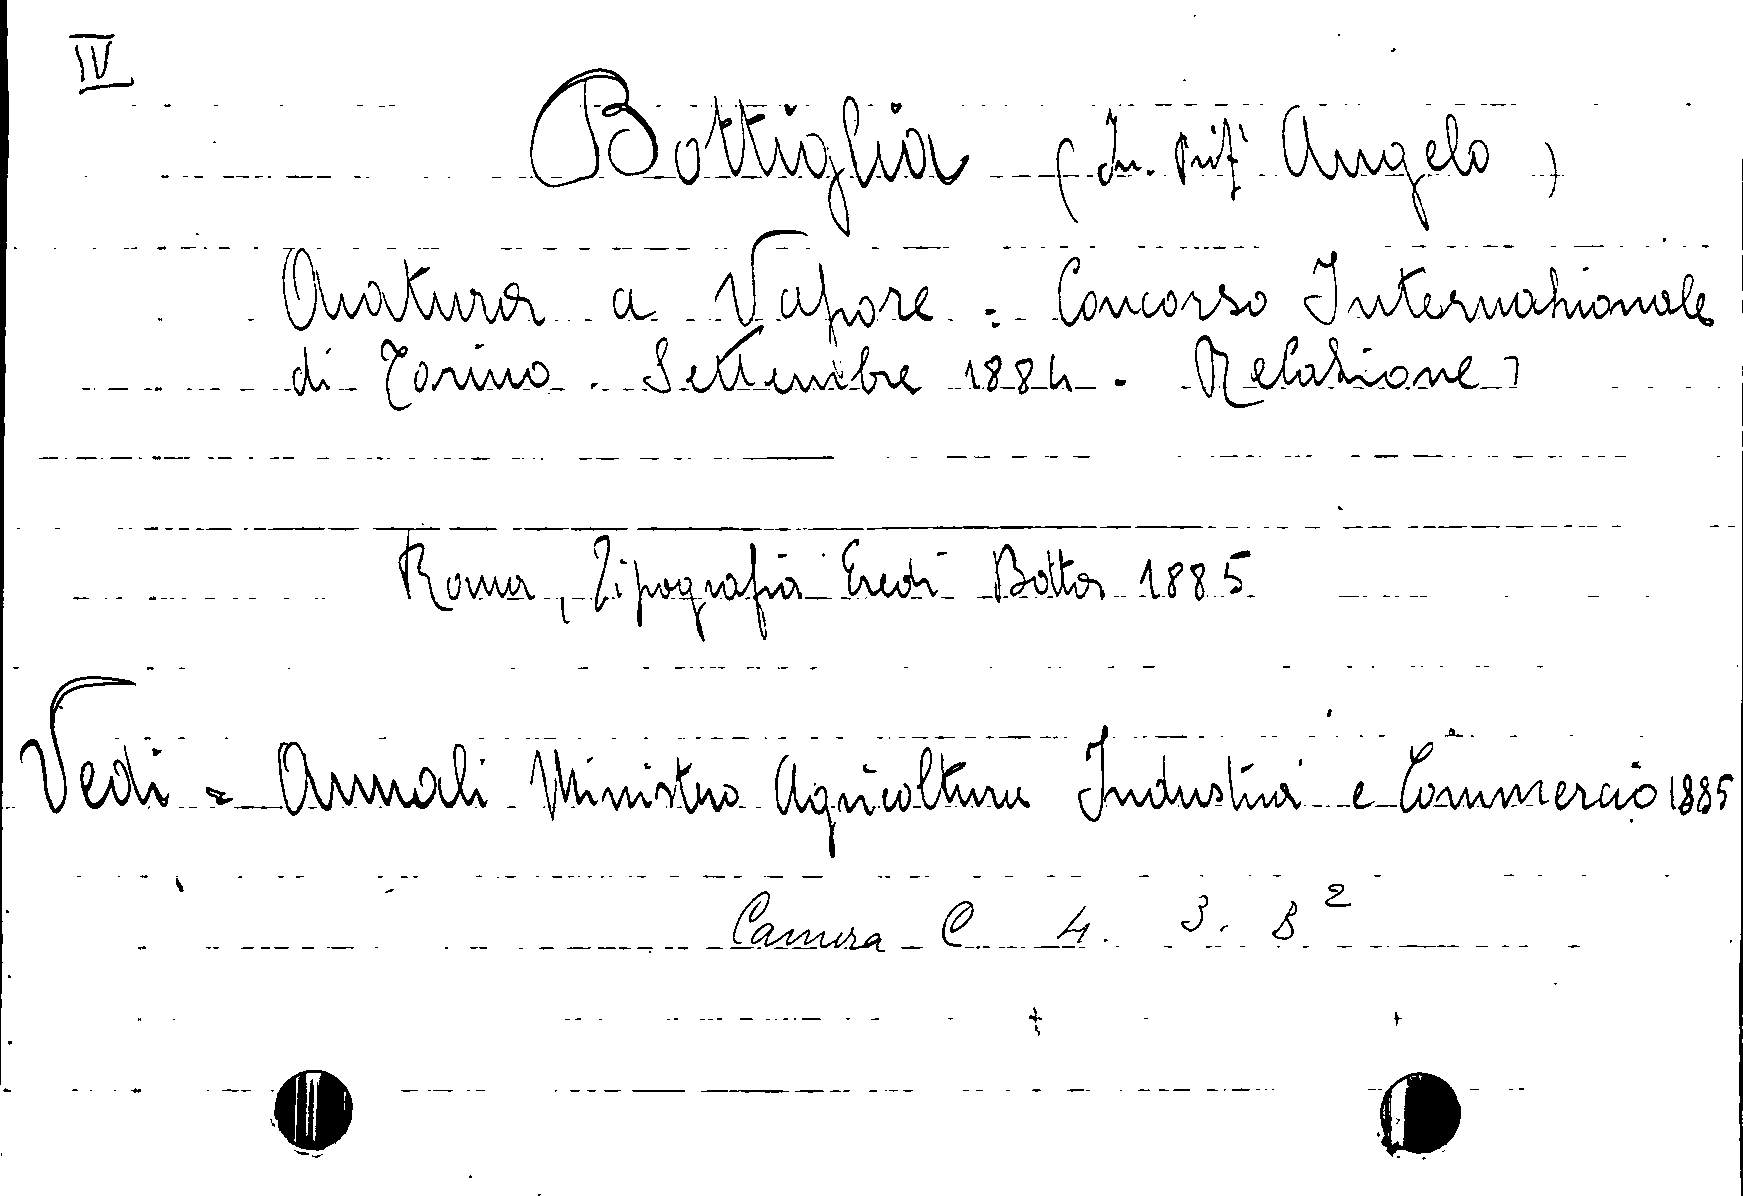 IV
Bottiglia (In. Prof. Angelo)
Aratura a Vapore = Concorso Internazionale
di Torino. Settembre 1884. Relazione
Roma, Tipografia Eredi Botta 1885
Vedi = Annali Ministro Agricoltura Industria e Commercio 1885
Camera C 4. 3. B²